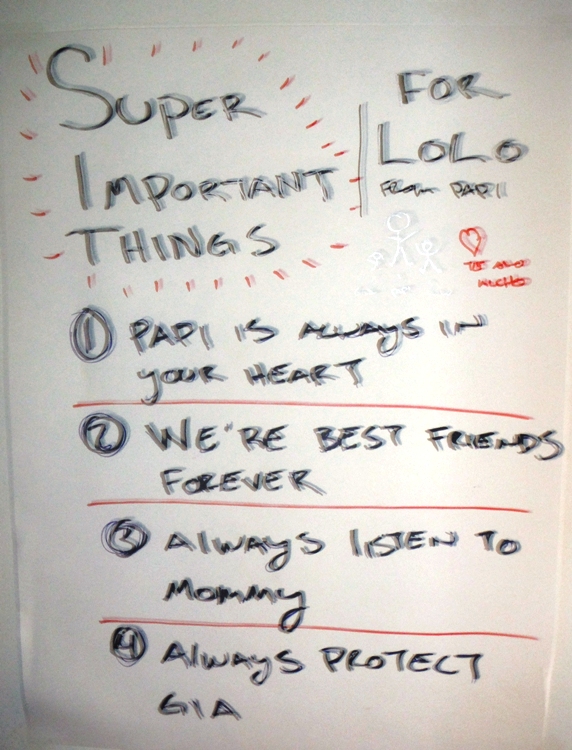 SUPER
IMPORTANT
THINGS
FOR
LOLO
FROM PAPI
TE AMO
MUCHO
1 PAPI IS ALWAYS IN
YOUR HEART
2 WE'RE BEST FRIENDS
FOREVER
3 ALWAYS LISTEN TO
MOMMY
4 ALWAYS PROTECT
GIA